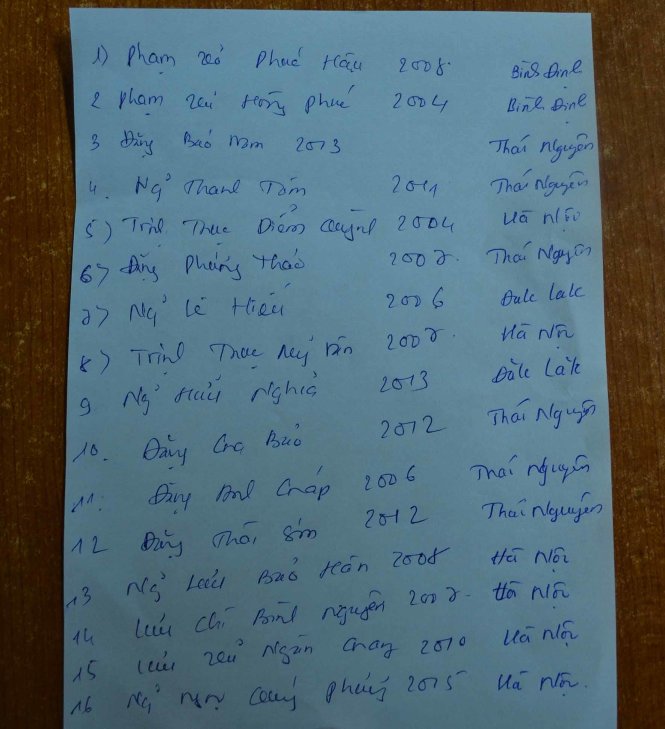 1) Phạm Phúc Hậu 2008. Bình Định
2 Phạm Hồng Phúc 2004 Bình Định
3 Đặng Bảo Nam 2013 Thái Nguyên
4. Ng Thanh Tâm 2011 Thái Nguyên
5) Trịnh Thục Diễm Quỳnh 2004 Hà Nội
6) Đặng Phương Thảo 2007. Thái Nguyên
7) Ng Lê Hiếu 2006 Đăk Lăk
8) Trịnh Thục 2007. Hà Nội
9 Ng Hữu Nghĩa 2013 Đăk Lăk
10. Đặng Gia Bảo 2012 Thái Nguyên
11. Đặng 2006 Thái Nguyên
12 Đặng Thái Sơn 2012 Thái Nguyên
13 Ng Lưu Bảo Hân 2008 Hà Nội
14 Lưu Chí Bình Nguyên 2007. Hà Nội
15 Lưu Ngân Giang 2010 Hà Nội
16 Ng 2015 Hà Nội.